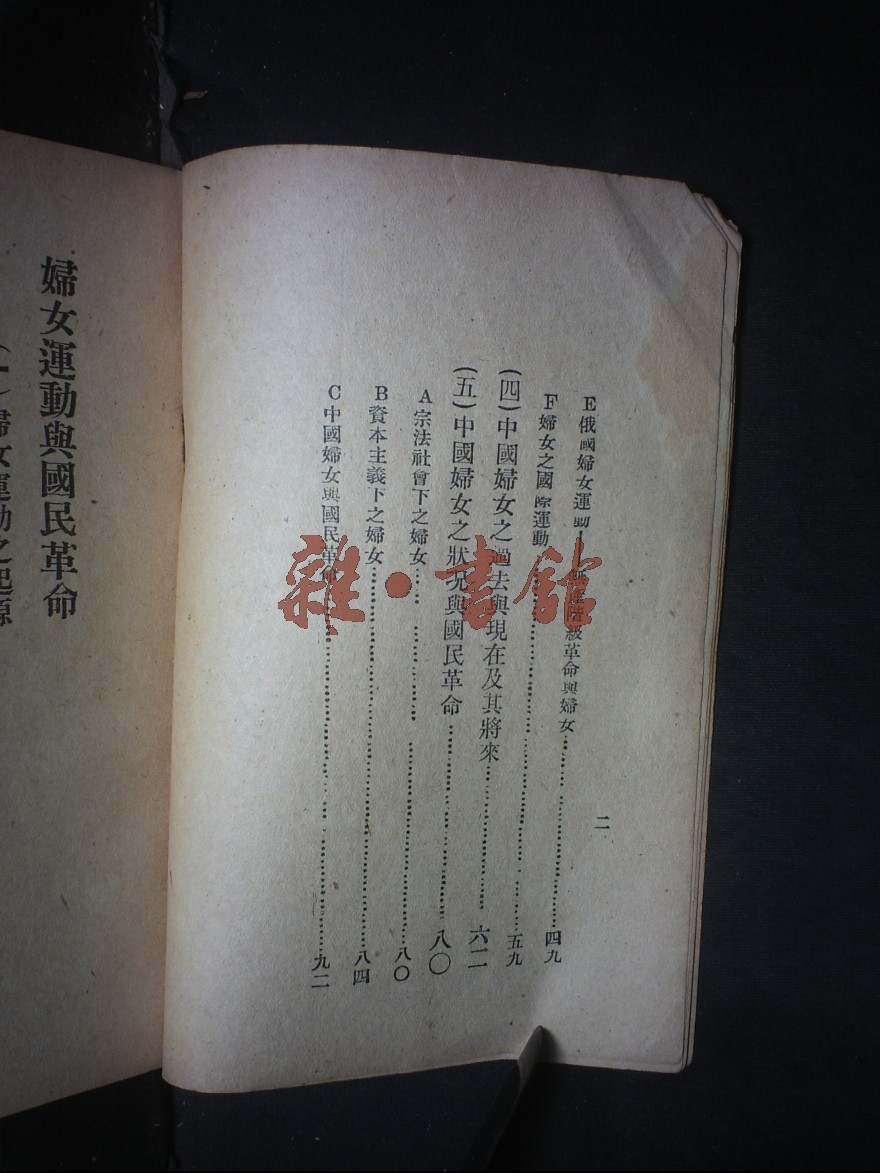 二
E俄國婦女運動—無產階級革命與婦女……四九
F婦女之國際運動……五九
(四)中國婦女之過去與現在及其將來……六二
(五)中國婦女之狀况與國民革命……八〇
A宗法社會下之婦女……八〇
B資本主義下之婦女……八四
C中國婦女與國民革命……九二
婦女運動與國民革命
(一)婦女運動之起源
雜·書館